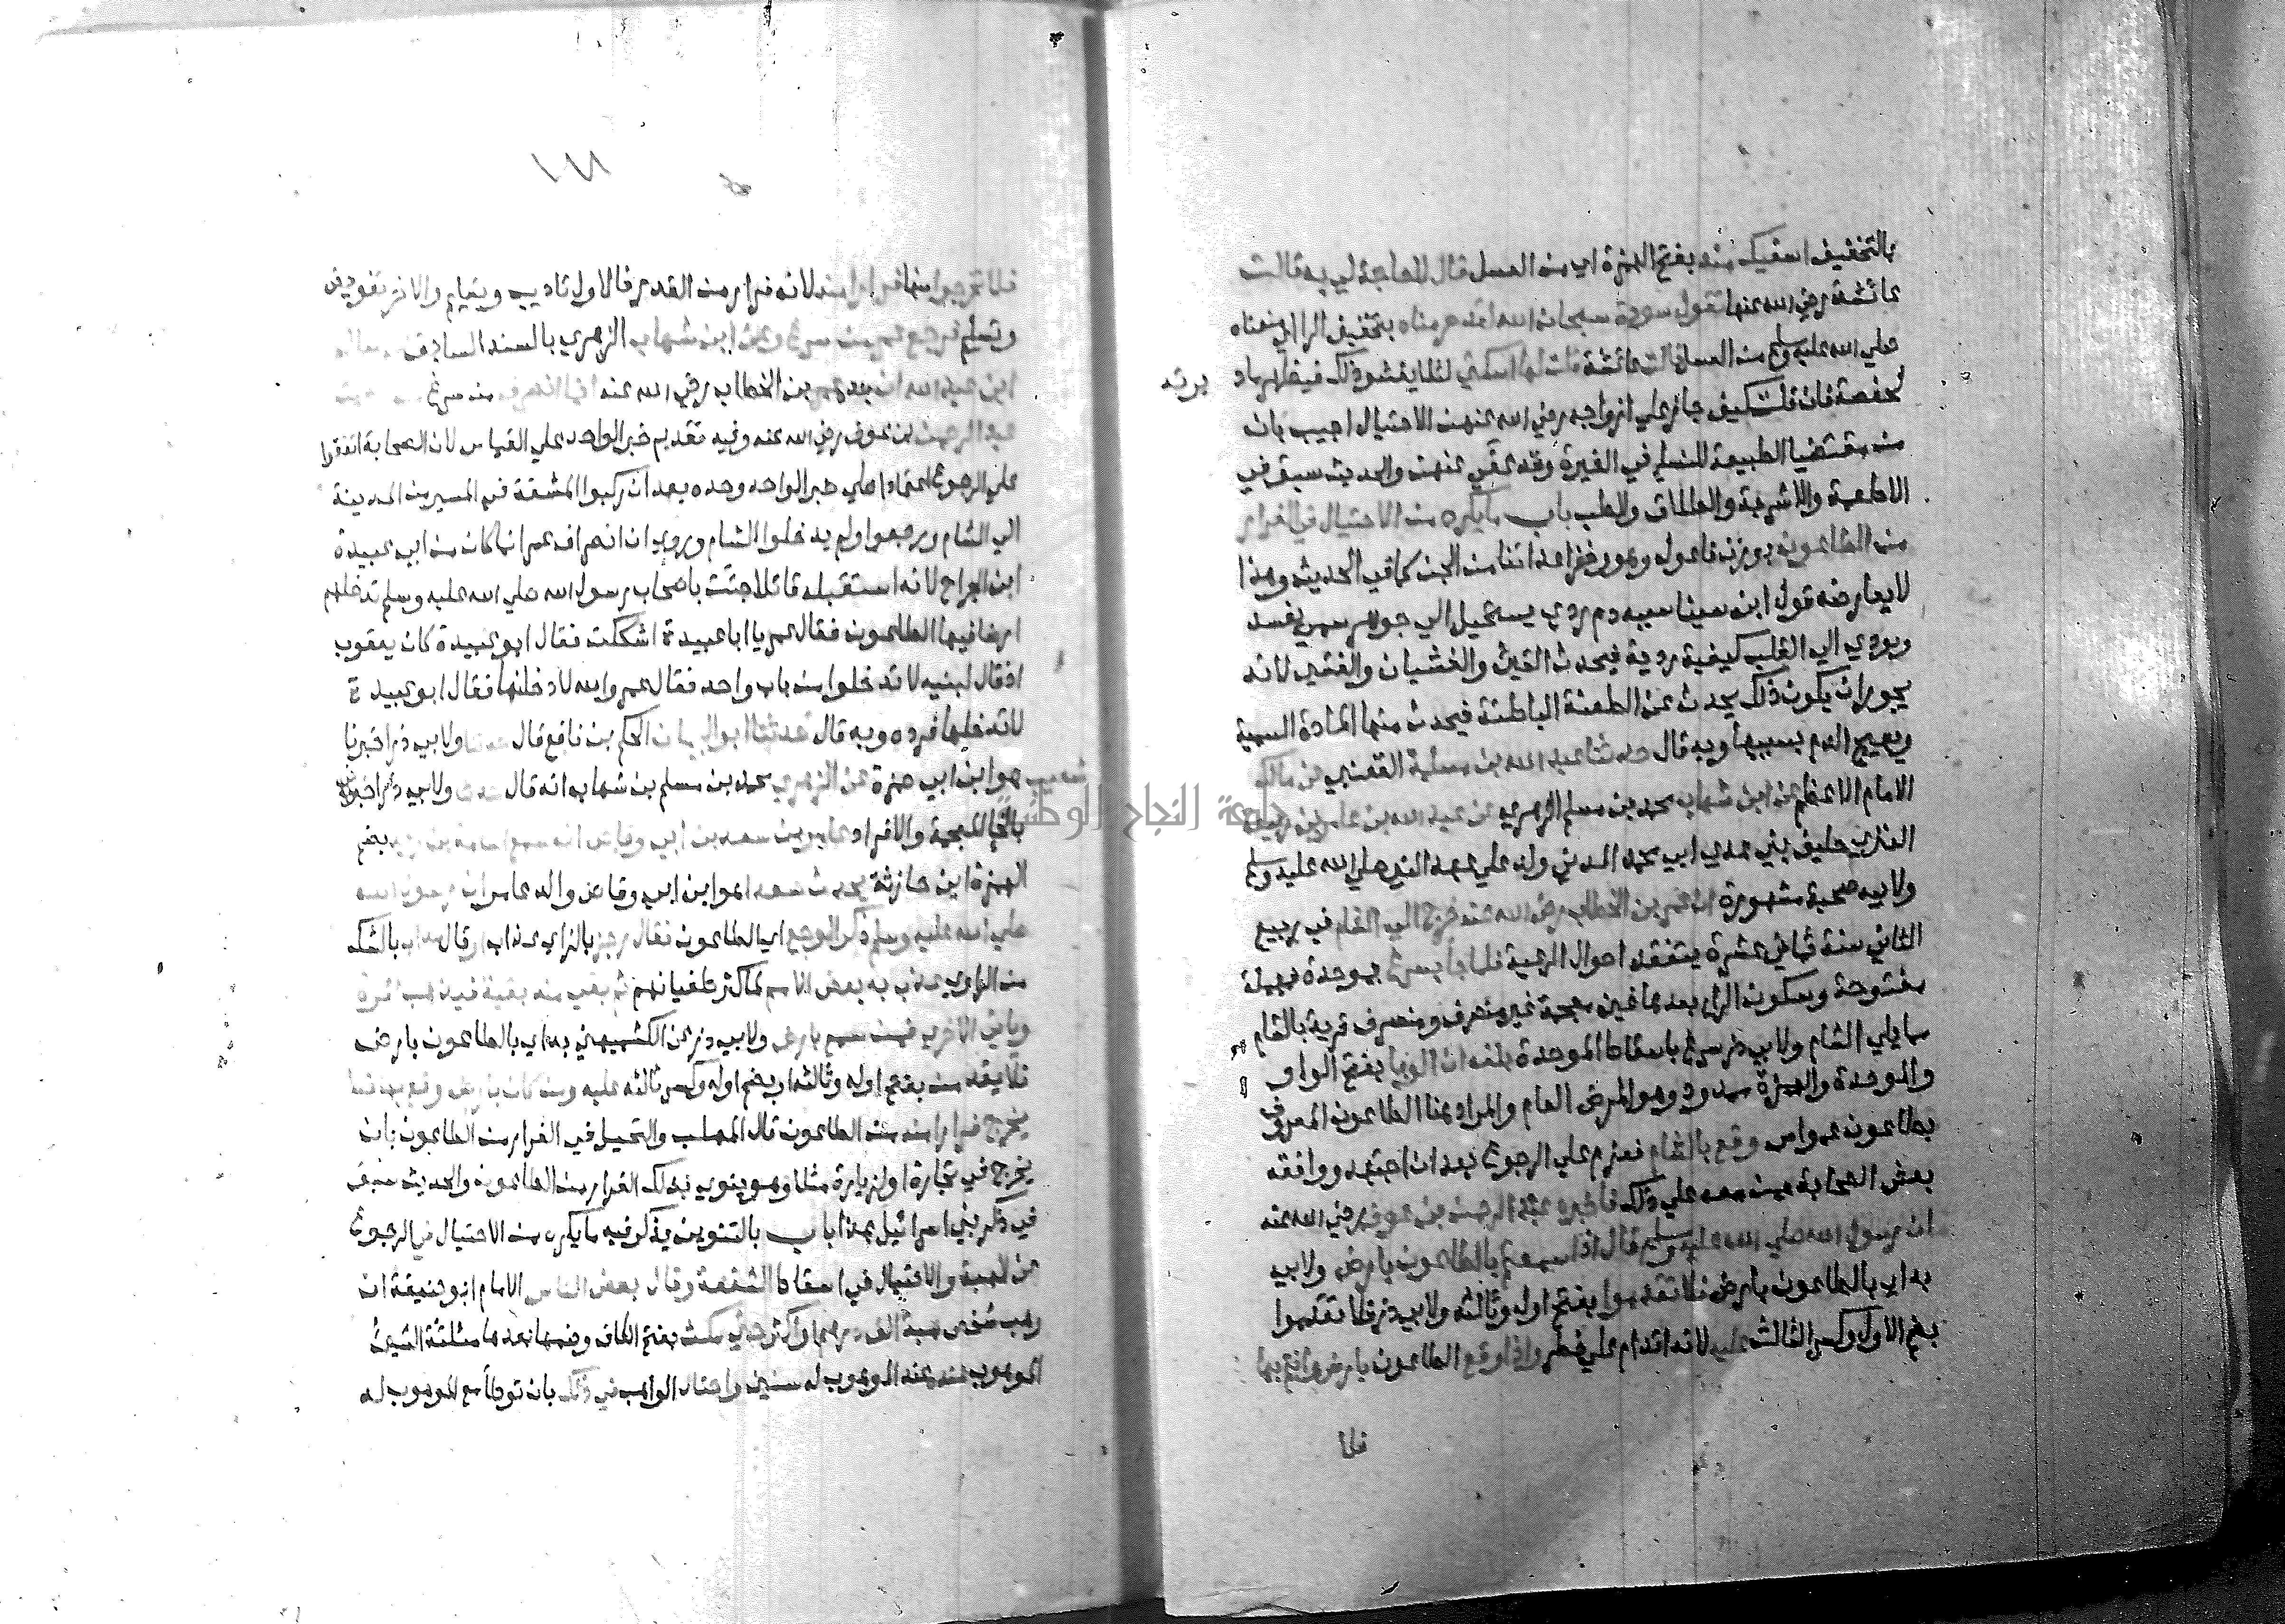 بالتخفيف اسقيك منه بفتح الهمزة اي من العسل قال لا حاجة لي به قالت
عائشة رضي الله عنها تقول سودة سبحان الله لقد حرمناه بتخفيف الرا اي منعناه
صلي الله عليه وسلم من العسل قالت عائشة قلت لها اسكتي لئلا يفشو ذلك فيظهر ما د برته
لحفصة فان قلت كيف جاز علي ازواجه رضي الله عنهن الاحتيال اجيب بان
من مقتضيا الطبيعة للنسا في الغيرة وقد عفي عنهن والحديث سبق في
الاطعمة والاشربة والطلاق والطب باب ما يكره من الاحتيال في الفرار
من الطاعون بوزن فاعول وهو وخز اعدائنا من الجن كما في الحديث وهذا
لا يعارضه قول ابن سينا سببه دم ردي يستحيل الي جوهر سمي يفسد
ويودي الي القلب كيفية ردية فيحدث القيئ والغشيان والغشي لانه
يجوز ان يكون ذلك يحدث عن الطعنة الباطنة فيحدث منها المادة السمية
ويهيج الدم بسببها وبه قال حدثنا عبد الله بن مسلمة القعنبي عن مالك
الامام الاعظم عن ابن شهاب محمد بن مسلم الزهري عن عبد الله بن عامر بن ربيعة
العنزي حليف بني عدي ابي محمد المدني ولد علي عهد النبي صلي الله عليه وسلم
ولابيه صحبة مشهورة ان عمر بن الخطاب رضي الله عنه خرج الي الشام في ربيع
الثاني سنة ثماني عشرة يتفقد احوال الرعية فلما جا بسرغ بموحدة فمهملة
مفتوحة وسكون الرا بعدها غين معجمة غير منصرف ومنصرف قرية بالشام
مما يلي الشام ولابي ذر سرغ باسقاط الموحدة بلغه ان الوبا بفتح الواو
والموحدة والهمزة ممدود وهو المرض العام والمراد هنا الطاعون المعروف
بطاعون عمواس وقع بالشام فعزم علي الرجوع بعد ان اجتهد ووافقه
بعض الصحابة ممن معه علي ذلك فاخبره عبد الرحمن بن عوف رضي الله عنه
ان رسول الله صلي الله عليه وسلم قال اذا سمعتم بالطاعون بارض ولابي
به اي بالطاعون بارض فلا تقدموا بفتح اوله وثالثه ولابي ذر فلا تقدموا
بضم الاول وكسر الثالث عليه لانه اقدام علي خطر واذا وقع الطاعون بارض وانتم بها
فلا
١٦٨
فلا تخرجوا منها فرارا منه لانه فرار من القدر فالاول تاديب وتعليم والاخر تفويض
وتسليم فرجع عمر من سرغ وعن ابن شهاب الزهري بالسند السابق
ابن عبد الله ان عمر بن الخطاب رضي الله عنه انما انصرف من سرغ من
عبد الرحمن بن عوف رضي الله عنه وفيه تقديم خبر الواحد علي القياس لان الصحابة اتفقوا
علي الرجوع اعتمادا علي خبر الواحد وحده بعد ان ركبوا المشقة في المسير من المدينة
الي الشام ورجعوا ولم يدخلوا الشام وروي ان انصراف عمر انما كان من ابي عبيدة
ابن الجراح لانه استقبله قائلا جئت باصحاب رسول الله صلي الله عليه وسلم تدخلهم
ارضا فيها الطاعون فقال عمر يا ابا عبيدة اشككت فقال ابو عبيدة كان يعقوب
اذ قال لبنيه لا تدخلوا من باب واحد فقال عمر والله لادخلنها فقال ابو عبيدة
لا تدخلها فرده وبه قال حدثنا ابو اليمان الحكم بن نافع قال حدثنا ولابي ذر اخبرنا
شعيب هو ابن ابي حمزة عن الزهري محمد بن مسلم بن شهاب انه قال حدثنا ولابي ذر اخبرني
بالخا المعجمة والافراد عامر بن سعد بن ابي وقاص انه سمع اسامة بن زيد بضم
الهمزة ابن حارثة يحدث سعدا هو ابن ابي وقاص والد عامر ان رسول الله
صلي الله عليه وسلم ذكر الوجع اي الطاعون فقال رجز بالزاي عذاب او قال عذاب بالشك
من الراوي عذب به بعض الامم لما كثر طغيانهم ثم بقي منه بقية فيذهب المرة
وياتي الاخري فمن سمع بارض ولابي ذر عن الكشميهني به اي بالطاعون بارض
فلا يقدمن بفتح اوله وثالثه او بضم اوله وكسر ثالثه عليه ومن كان بارض وقع بها فلا
يخرج فرارا منه من الطاعون قال المهلب والتحيل في الفرار من الطاعون بان
يخرج في تجارة او لزيارة مثلا وهو ينوي بذلك الفرار من الطاعون والحديث سبق
في ذكر بني اسرائيل هذا باب بالتنوين يذكر فيه ما يكره من الاحتيال في الرجوع
عن الهبة والاحتيال في اسقاط الشفعة وقال بعض الناس الامام ابو حنيفة ان
وهب شخص هبة الف درهم او اكثر حتي مكث بفتح الكاف وضمها بعدها مثلثة الشيئ
الموهوب عنده عند الموهوب له سنين واحتال الواهب في ذلك بان تواطأ مع الموهوب له
جامعة النجاح الوطنية